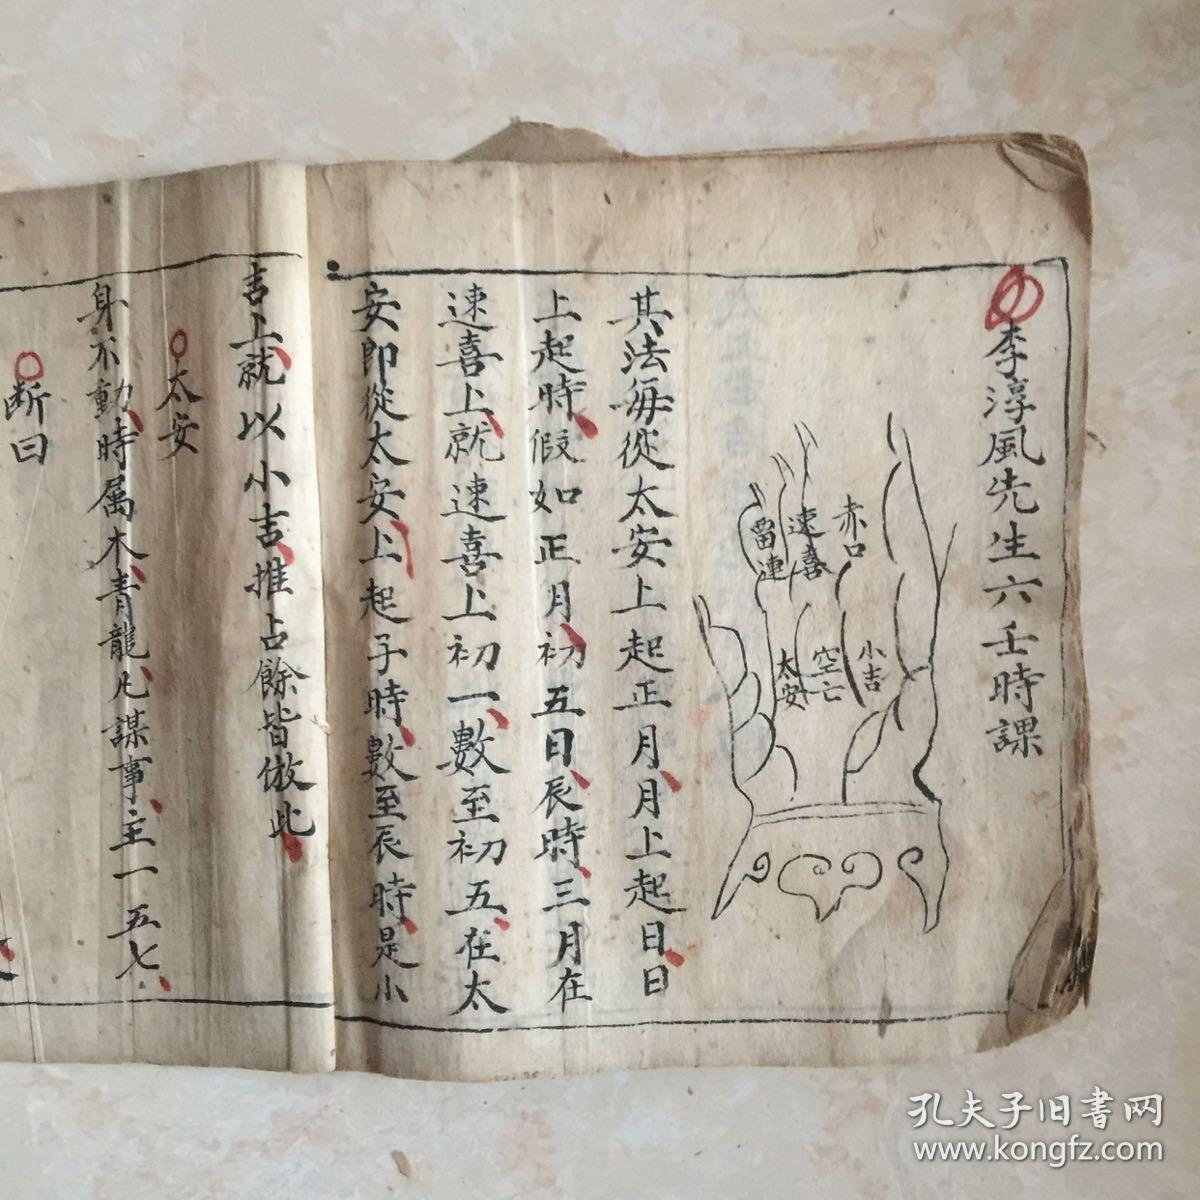 李淳風先生六壬時課
赤口
速喜
畱連
小吉
空亡
太安
其法每從太安上起正月月上起日日
上起時假如正月初五日辰時三月在
速喜上就速喜上初一數至初五在太
安即從太安上起子時數至辰時是小
吉上就以小吉推占餘皆倣此
太安
身不動時属木青龍凡謀事主一五七
断曰
孔夫子旧书网
www.kongfz.com